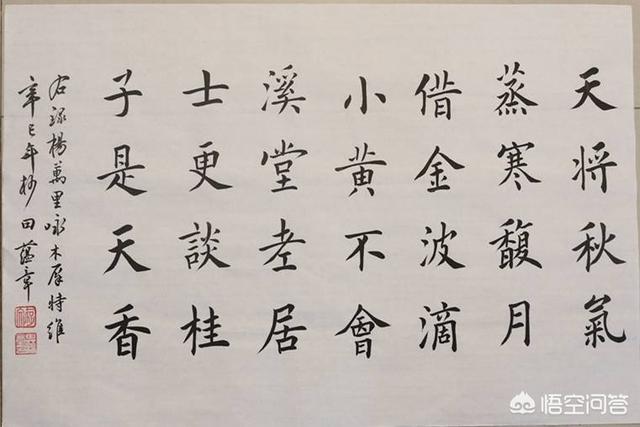 天将秋氣
蒸寒馥月
借金波滴
小黄不會
溪堂老居
士更談桂
子是天香
右録楊萬里咏木犀時維
辛巳年杪田蕴章
悟空问答